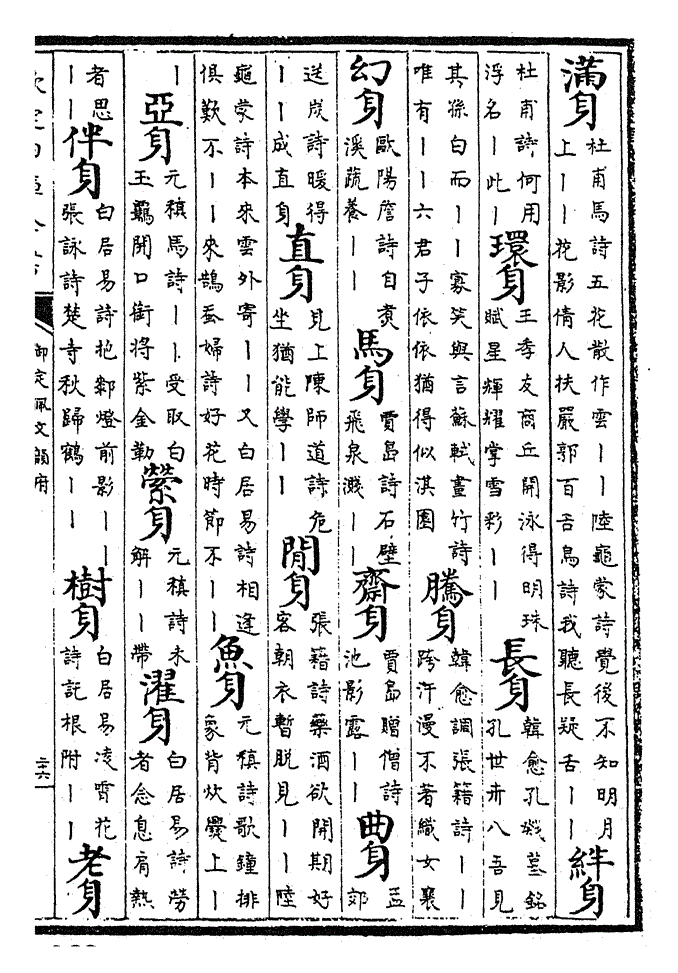 滿身
杜甫馬詩五花散作雲｜｜陸龜蒙詩覺後不知明月
上｜｜花影倩人扶嚴郭百舌鳥詩我聽長疑舌｜｜
絆身
杜甫詩何用
浮名｜此｜
環身
王季友商丘開泳得明珠
賦星輝耀掌雪彩｜｜
長身
韓愈孔戣墓銘
孔世卅八吾見
其孫白而｜｜寡笑與言蘇軾畫竹詩
唯有｜｜六君子依依猶得似淇園
騰身
韓愈調張籍詩｜｜
跨汗漫不著織女襄
幻身
歐陽詹詩自煑
溪蔬養｜｜
馬身
賈島詩石壁
飛泉濺｜｜
齋身
賈島贈僧詩
池影露｜｜
曲身
孟
郊
送炭詩暖得
｜｜成直身
直身
見上陳師道詩危
坐猶能學｜｜
閒身
張籍詩藥酒欲開期好
客朝衣暫脫見｜｜陸
龜蒙詩本來雲外寄｜｜又白居易詩相逢
俱歎不｜｜來鵠蚕婦詩好花時節不｜｜
魚身
元稹詩歌鐘排
象背炊爨上｜
｜
亞身
元稹馬詩｜｜受取白
玉羈開口銜將紫金勒
縈身
元稹詩未
解｜｜帶
濯身
白居易詩勞
者念息肩熱
者思
｜｜
伴身
白居易詩抱郄燈前影｜｜
張詠詩楚寺秋歸鶴｜｜
樹身
白居易凌霄花
詩託根附｜｜
老身
欽定四庫全書
御定佩文韻府
二十六